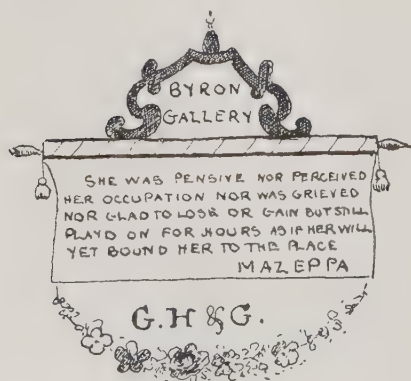 BYRON
GALLERY
SHE WAS PENSIVE NOR PERCEIVED
HER OCCUPATION NOR WAS GRIEVED
NOR GLAD TO LOSE OR GAIN BUT STILL
PLAYD ON FOR HOURS AS IF HER WILL
YET BOUND HER TO THE PLACE
MAZEPPA
G.H & G.